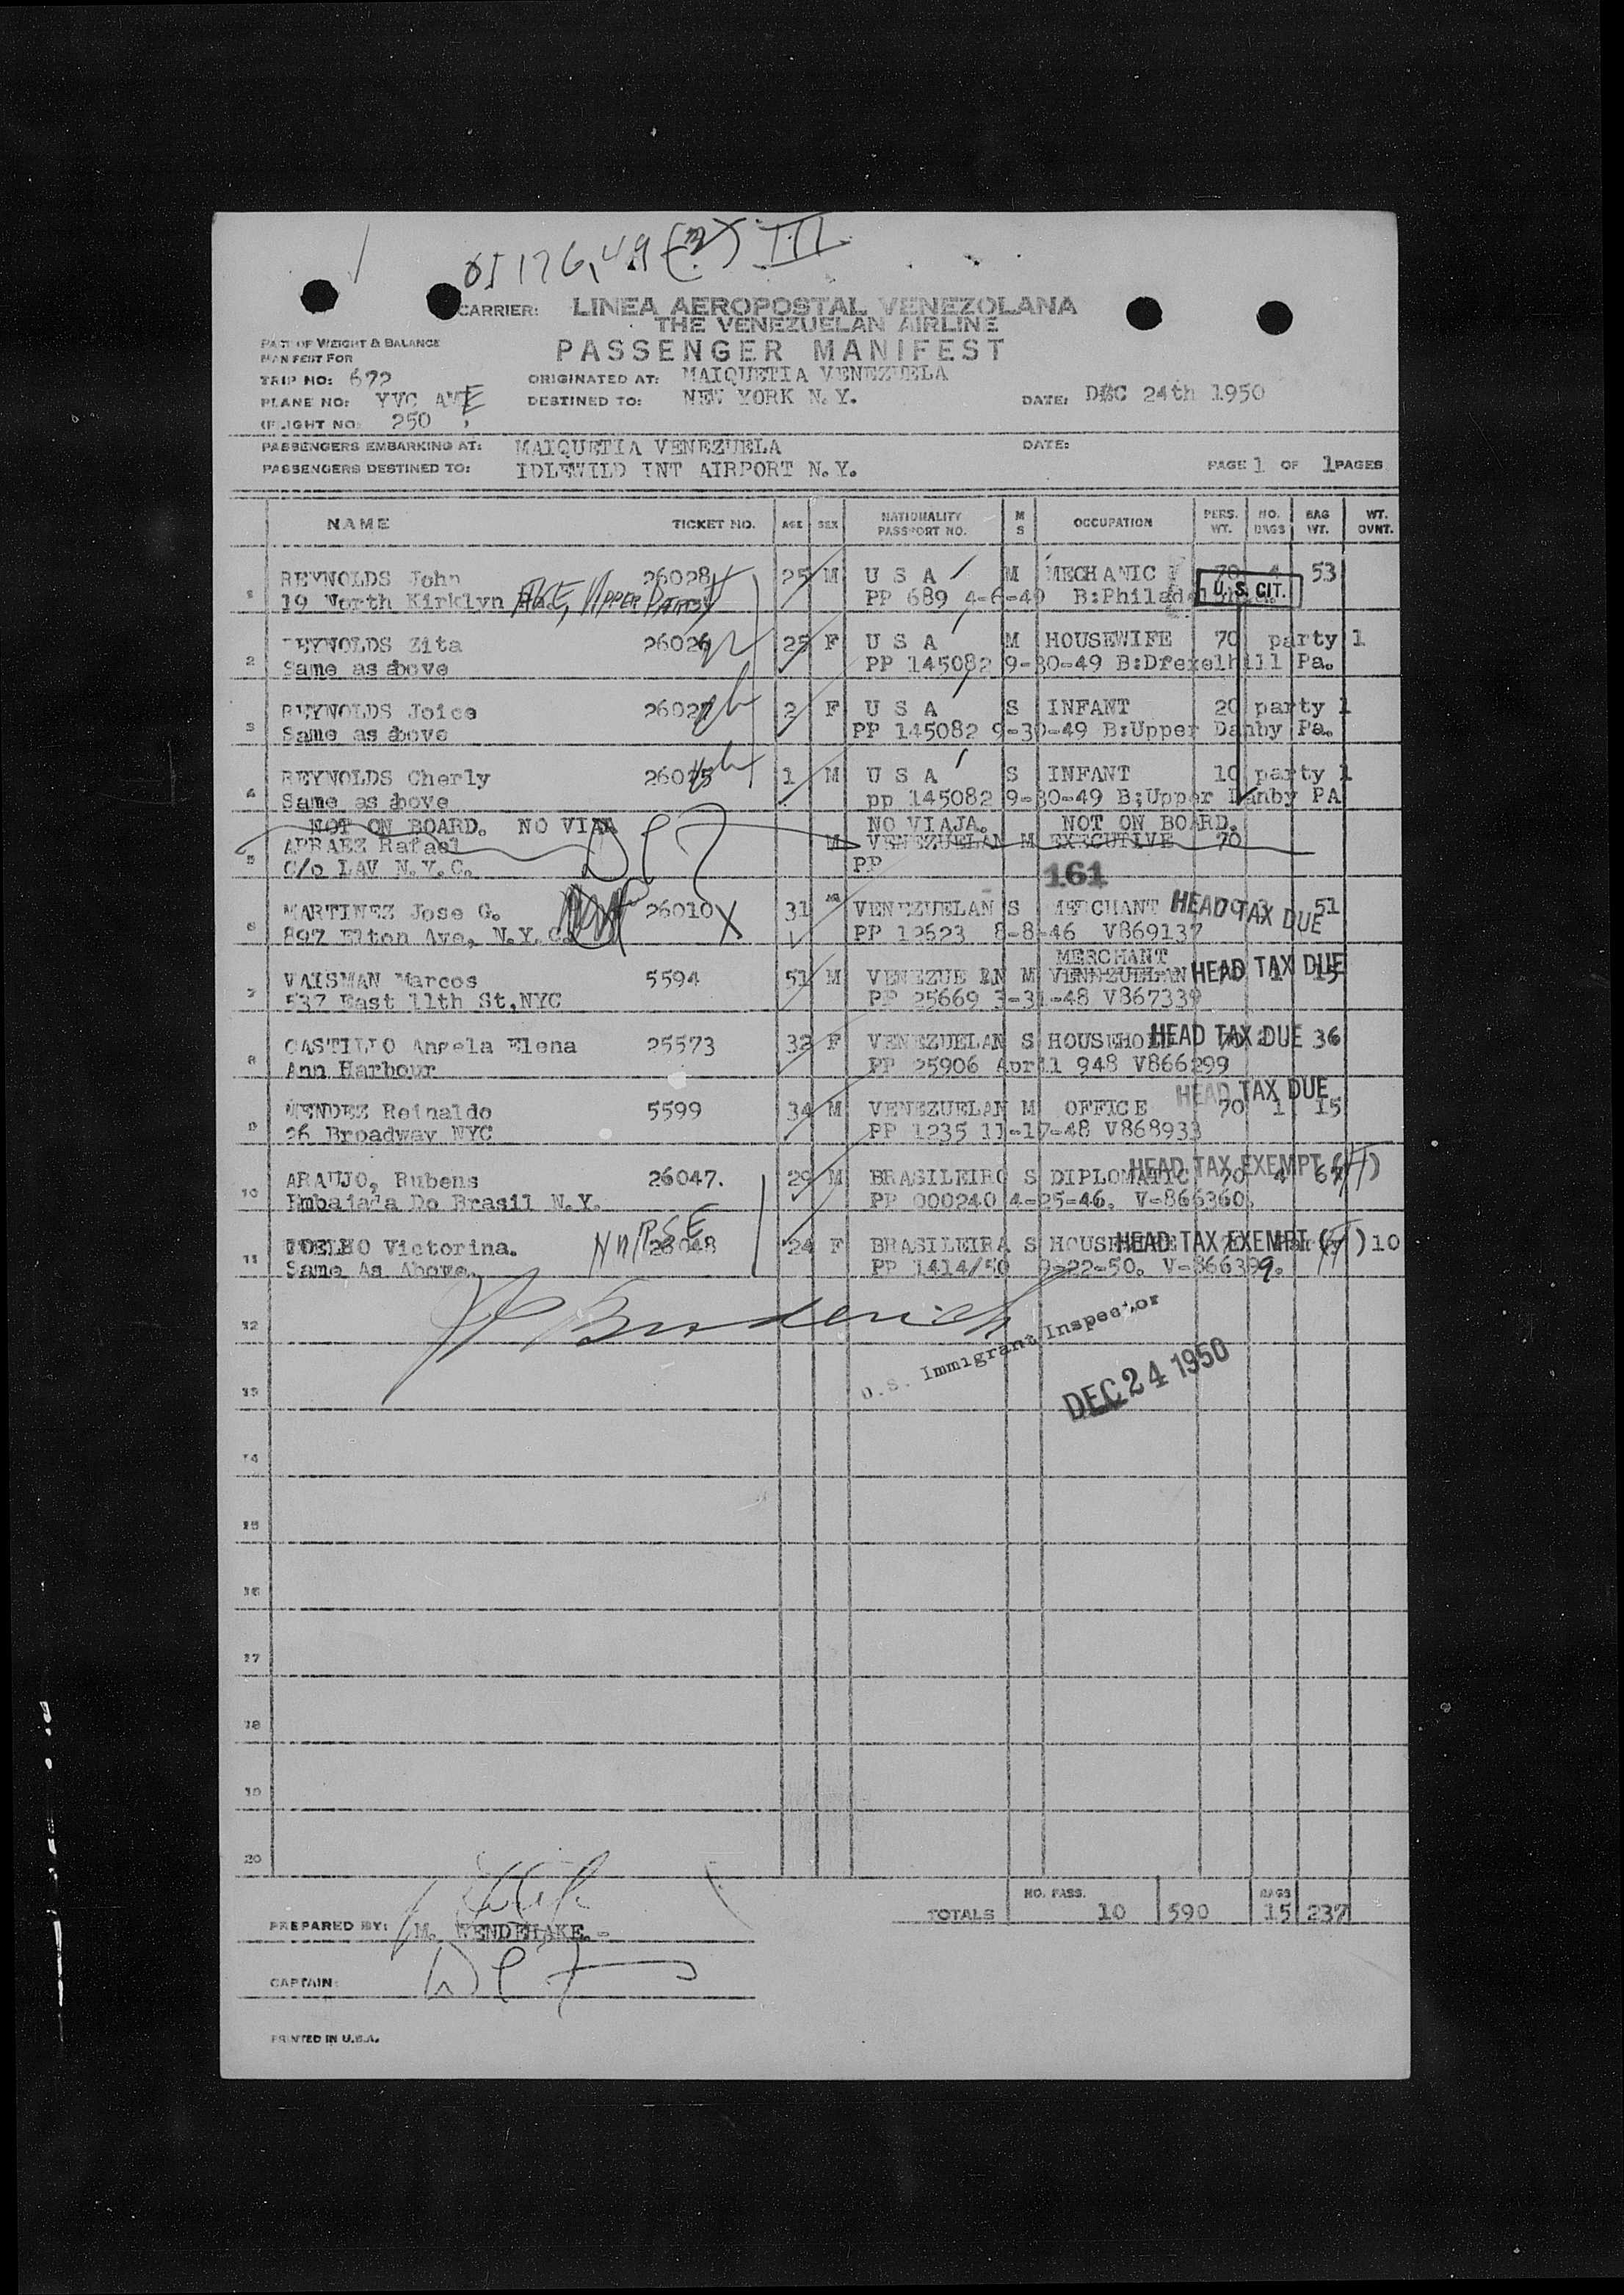 05176,49 (2) III
CARRIER: LINEA AEROPOSTAL VENEZOLANA
THE VENEZUELAN AIRLINE
PART OF WEIGHT & BALANCE
MANIFEST FOR
PASSENGER MANIFEST
TRIP NO: 672 ORIGINATED AT: MAIQUETIA VENEZUELA
PLANE NO: YVC AME DESTINED TO: NEW YORK N.Y. DATE: DEC 24th 1950
FLIGHT NO: 250
PASSENGERS EMBARKING AT: MAIQUETIA VENEZUELA DATE:
PASSENGERS DESTINED TO: IDLEWILD INT AIRPORT N.Y. PAGE 1 OF 1 PAGES
NAME TICKET NO. AGE SEX NATIONALITY PASSPORT NO. M S OCCUPATION PERS. WT. NO. BAGS BAG WT. WT. OVNT.
1 REYNOLDS John 26028 25 M U S A M MECHANIC 70 4 53
19 North Kirklyn AVE, UPPER DARBY PP 689 4-6-49 B:Philadelphia. U.S. CIT.
2 REYNOLDS Zita 26026 25 F U S A M HOUSEWIFE 70 party 1
Same as above PP 145082 9-30-49 B:Drexelhill Pa.
3 REYNOLDS Joice 26027 2 F U S A S INFANT 20 party 1
Same as above PP 145082 9-30-49 B:Upper Danby Pa.
4 REYNOLDS Cherly 26025 1 M U S A S INFANT 10 party 1
Same as above pp 145082 9-30-49 B;Upper Danby PA
NOT ON BOARD. NO VIAJA NO VIAJA. NOT ON BOARD.
5 ARRAEZ Rafael M VENEZUELAN M EXECUTIVE 70
C/o LAV N.Y.C. PP
161
6 MARTINEZ Jose G. 26010 X 31 M VENEZUELAN S MERCHANT 70 3 51 HEAD TAX DUE
897 Elton Ave, N.Y.C. PP 12623 8-8-46 V869137
MERCHANT
7 VAISMAN Marcos 5594 51 M VENEZUE AN M VENEZUELAN 70 1 15 HEAD TAX DUE
537 East 11th St,NYC PP 25669 3-31-48 V867339
8 CASTILLO Angela Elena 25573 32 F VENEZUELAN S HOUSEHOLD 70 2 36 HEAD TAX DUE
Ann Harbour PP 25906 April 948 V866299
HEAD TAX DUE
9 MENDEZ Reinaldo 5599 34 M VENEZUELAN M OFFICE 70 1 15
26 Broadway NYC PP 1235 11-17-48 V868933
10 ARAUJO, Rubens 26047. 29 M BRASILEIRO S DIPLOMATIC 70 4 67 HEAD TAX EXEMPT
Embajada Do Brasil N.Y. PP 000240 4-25-46. V-866360.
NURSE
11 COELHO Victorina. 26048 24 F BRASILEIRA S HOUSE HEAD TAX EXEMPT 10
Same As Above. PP 1414/50 9-22-50. V-866399.
12 Broderick
U.S. Immigrant Inspector
13 DEC 24 1950
14
15
16
17
18
19
20
NO. PASS. BAGS
TOTALS 10 590 15 237
PREPARED BY: M. WENDEHAKE.-
CAPTAIN:
PRINTED IN U.S.A.